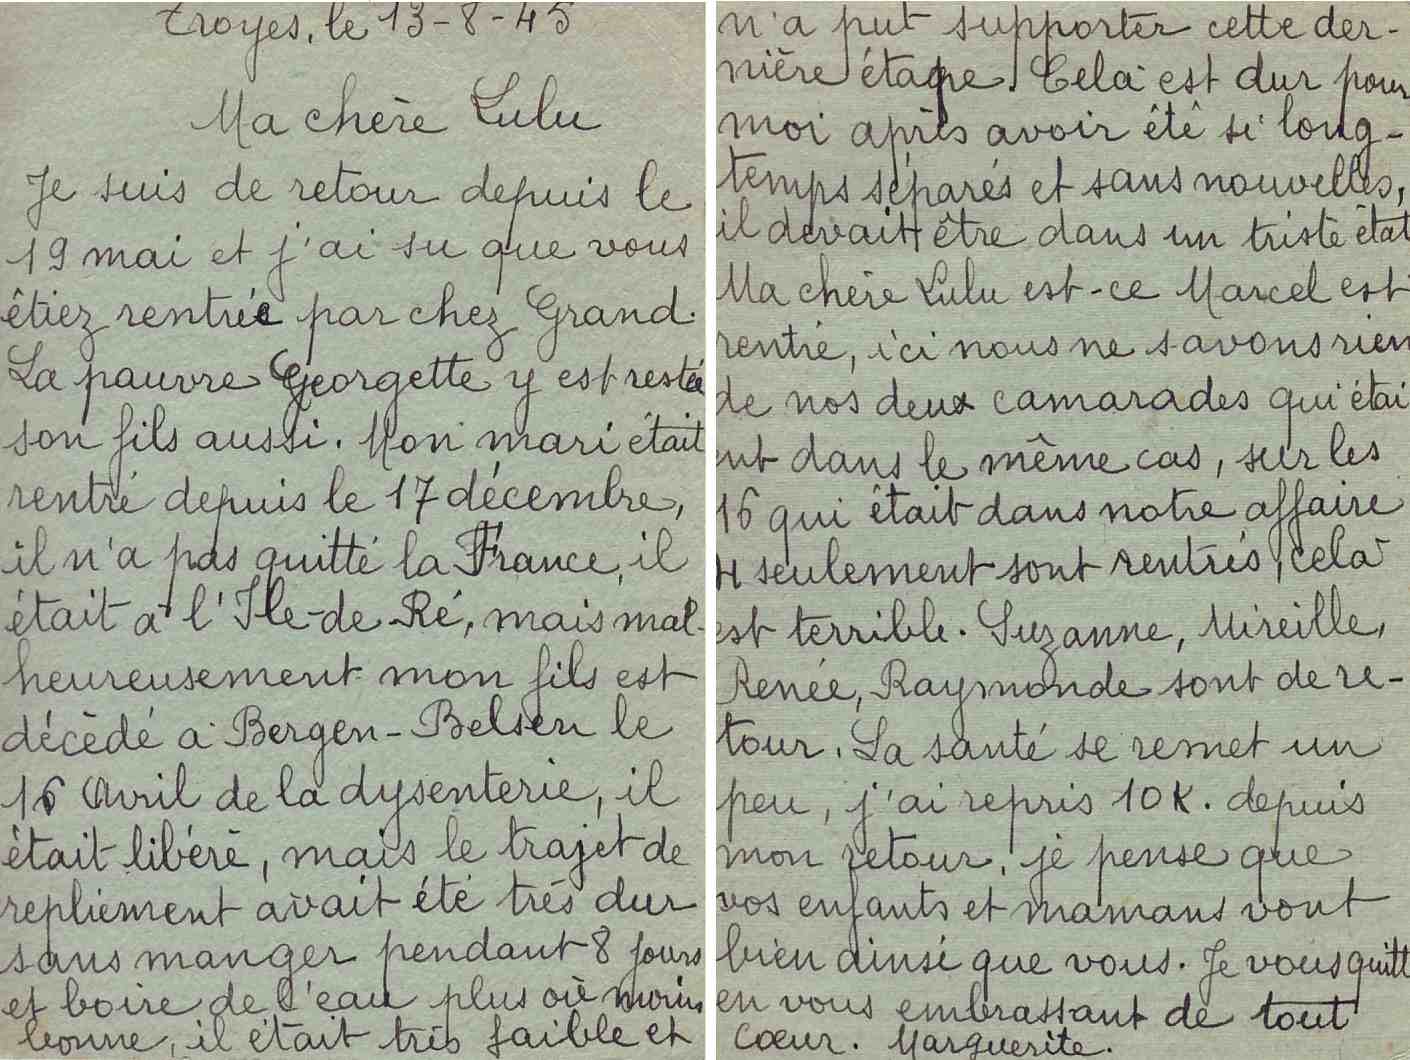 Troyes, le 13-8-45
Ma chère Lulu
Je suis de retour depuis le
19 mai et j'ai su que vous
êtiez rentrée par chez Grand.
La pauvre Georgette y est restée
son fils aussi. Mon mari était
rentré depuis le 17 décembre,
il n'a pas quitté la France, il
était à l'Ile-de-Ré, mais mal-
heureusement mon fils est
décèdé a Bergen-Belsen le
16 Avril de la dysenterie, il
était libéré, mais le trajet de
repliement avait été trés dur
sans manger pendant 8 jours
et boire de l'eau plus où moins
bonne, il était trés faible et
n'a put supporter cette der-
nière étape. Cela est dur pour
moi après avoir été si long-
temps séparés et sans nouvelles,
il devait être dans un triste état
Ma chère Lulu est-ce Marcel est
rentré, ici nous ne savons rien
de nos deux camarades qui étai
ent dans le même cas, sur les
16 qui était dans notre affaire
4 seulement sont rentrés, cela
est terrible. Suzanne, Mireille,
Renée, Raymonde sont de re-
tour. La santé se remet un
peu, j'ai repris 10 K. depuis
mon retour, je pense que
vos enfants et mamans vont
bien ainsi que vous. Je vous quitt
en vous embrassant de tout
Cœur. Marguerite.